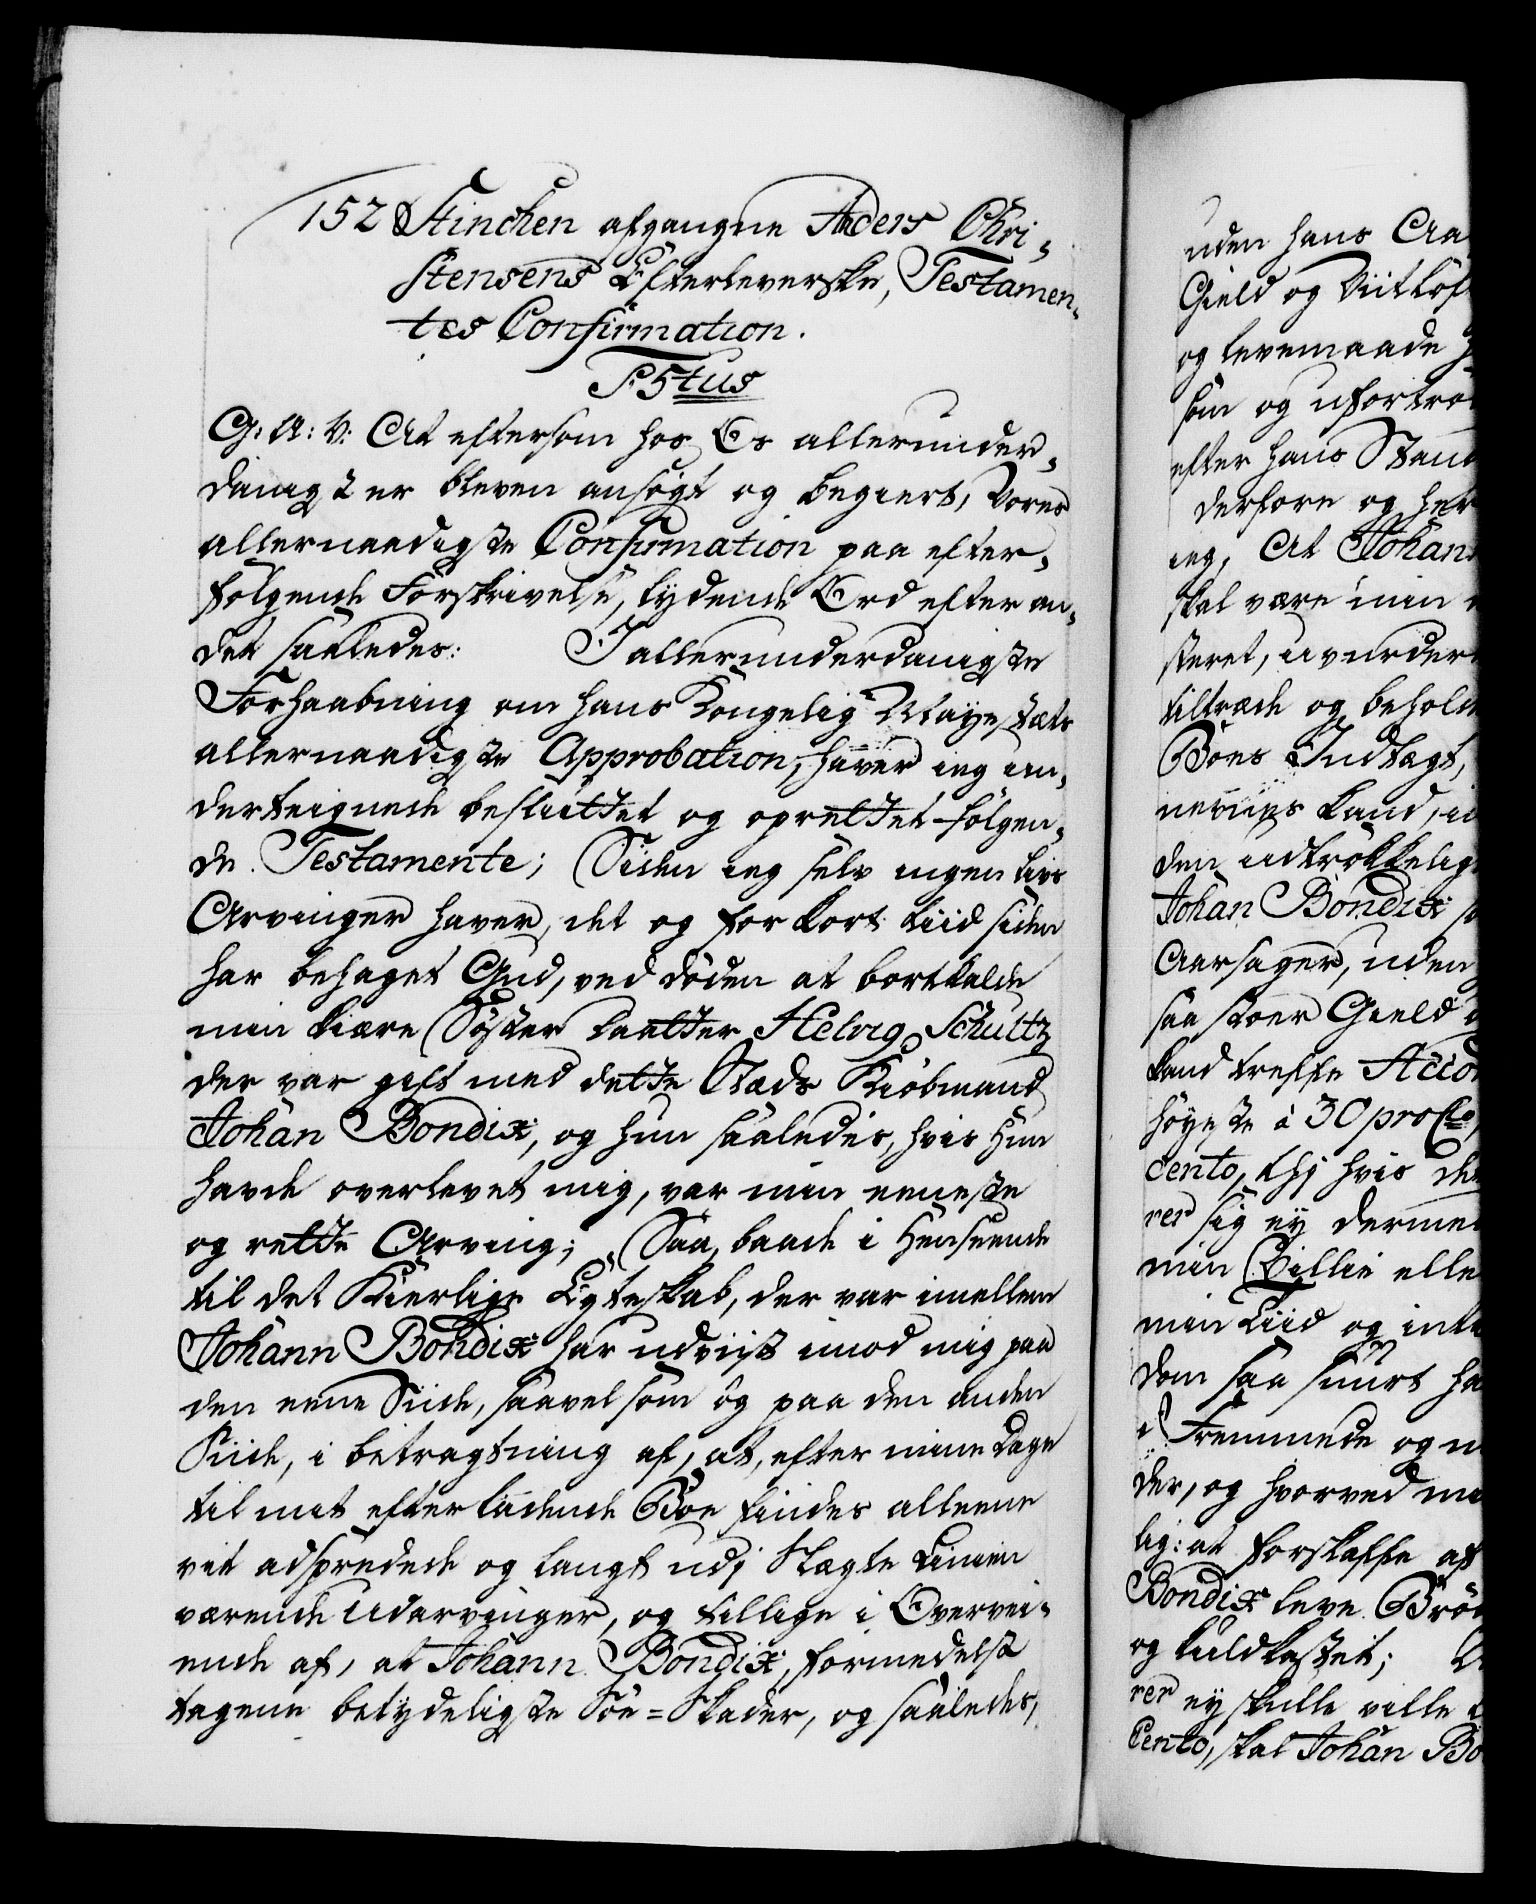 152 Stinchen afgangne Anders Chri-
stensens Efterleverske, Testamen-
tes Confirmation.
F. 5tus
G: A: V: At eftersom hos Os allerunder-
danigst er bleven ansøgt og begiert, Vores
allernaadigste Confirmation paa efter-
følgende Forskrivelse, lydende Ord efter an-
det saaledes: I allerunderdanigste
Forhaabning om hans Kongelig Mayestæts
allernaadigste Approbation, haver ieg un-
derteignede besluttet og oprettet følgen-
de Testamente; Siden ieg selv ingen livs
Arvinger haver, det og for kort tiid siden
har behaget Gud, ved døden at bortkalde
min kiære Søster daatter Helvig Schultz
der var gift med dette Stæds Kiøbmand
Johan Bondix, og hun saaledes, hvis hun
havde overlevet mig, var min eeneste
og rette Arving; Saa, baade i Henseende
til det Kierlige Egteskab, der var imellem
Johann Bondix har udviist imod mig paa
den eene Siide, saavelsom og paa den anden
Siide, i betragtning af, at, efter mine Dage
til mit efterladende Boe findes alleene
vit adspredede og langt udj Slægte Linien
værende Udarvinger, og tillige i Overvei-
ende af, at Johann Bondix, formedelst
tagene betydeligste Søe-Skader, og saaledes,
uden hans Aa
Gield og Vitløf
og levemaade
som og ufortrø
efter hans Stand
derfore og her
ieg, At Johan
skal være min
steret, uvurder
tiltræde og behold
Boes Indtægt,
nevnes kand, i
den udtrøkkelig
Johan Bondix
Aarsager, uden
saa stoer Gield
kand treffe Acco
høyeste à 30 pro Cto
cento, thj hvis de
rer sig ey derme
min Villie elle
min Tiid og int
dom saa suurt ha
d Fremmede og
der, og hvorved
lig: at forskaffe af
Bondix leve Brø
og kuldkastet;
rer ey skulle ville
Cento, skal Johan Bo